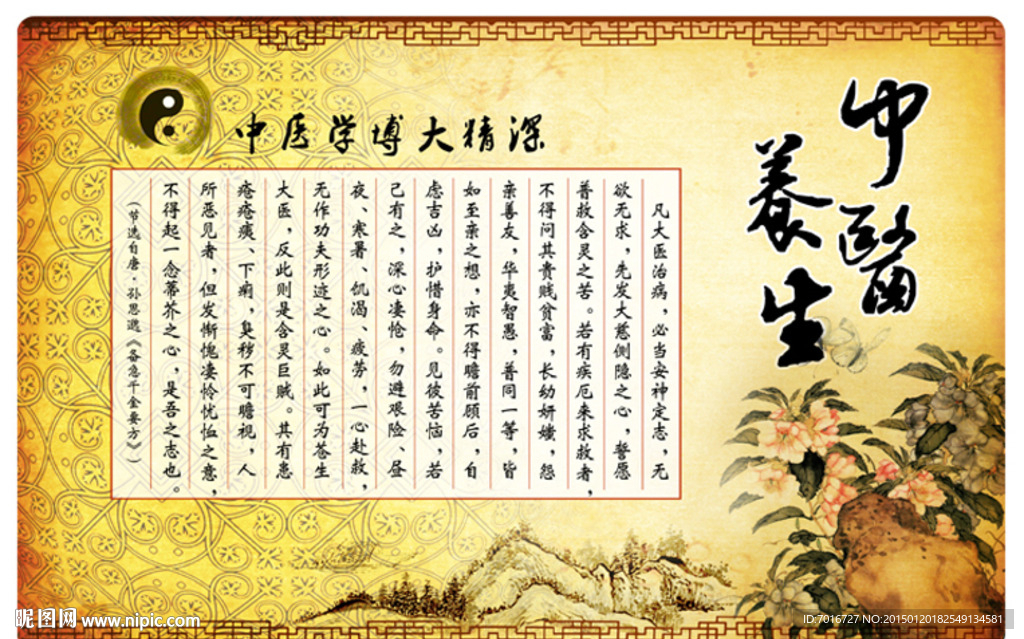 中醫
養生
中医学博大精深
凡大医治病，必当安神定志，无
欲无求，先发大慈恻隐之心，誓愿
普救含灵之苦。若有疾厄来求救者，
不得问其贵贱贫富，长幼妍媸，怨
亲善友，华夷智愚，普同一等，皆
如至亲之想，亦不得瞻前顾后，自
虑吉凶，护惜身命。见彼苦恼，若
己有之，深心凄怆，勿避艰险、昼
夜、寒暑、饥渴、疲劳，一心赴救，
无作功夫形迹之心。如此可为苍生
大医，反此则是含灵巨贼。其有患
疮疮痍、下痢，臭秽不可瞻视，人
所恶见者，但发惭愧凄怜忧恤之意，
不得起一念蒂芥之心，是吾之志也。
（节选自唐·孙思邈《备急千金要方》）
昵图网 www.nipic.com
ID:7016727 NO:20150120182549134581